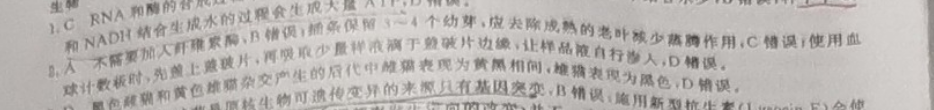 生物
1. C RNA和酶的合成
和NADH结合生成水的过程会生成大量ATP,D错误。
2. A 不需要加入纤维素酶,B错误;插条保留3~4个幼芽,应去除成熟的老叶减少蒸腾作用,C错误;使用血
球计数板时,先盖上盖玻片,再吸取少量样液滴于盖玻片边缘,让样品液自行渗入,D错误。
黑色雌猫和黄色雄猫杂交产生的后代中雌猫表现为黄黑相间,雄猫表现为黑色,D错误。
原核生物可遗传变异的来源只有基因突变,B错误;施用新型抗生素